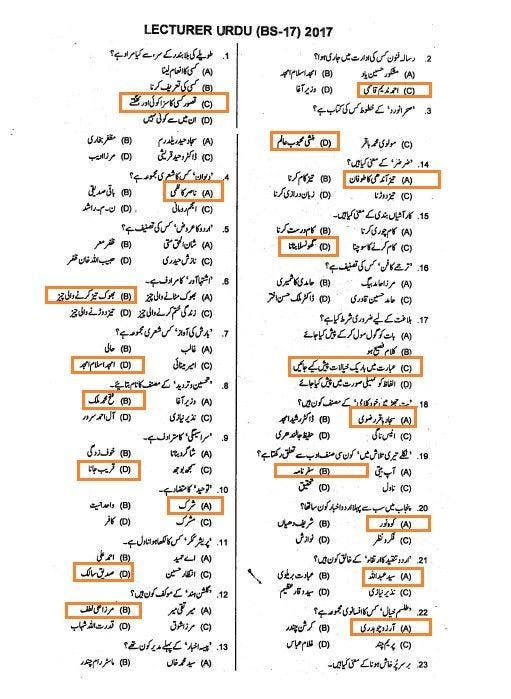 LECTURER URDU (BS-17) 2017
1. طویلے کی بلا بندر کے سر، سے کیا مراد ہے؟
(A) کسی کا انعام لینا
(B) کسی کی تعریف کرنا
(C) قصور کسی کا سزا کوئی اور بھگتے
(D) ان میں سے کوئی نہیں
(A) سجاد حیدر یلدرم (B) مظفر بخاری
(C) ڈاکٹر وحید قریشی (D) مرزا ادیب
4. 'دیوان' کس کا شعری مجموعہ ہے؟
(A) ناصر کاظمی (B) باقی صدیقی
(C) انجم رومانی (D) ن۔م۔راشد
5. 'اردو کا عروض' کس کی تصنیف ہے؟
(A) شان الحق حقی (B) ظفر عمر
(C) نازش حیدری (D) حبیب اللہ خان غضنفر
6. 'اشتہا آور' کا مترادف ہے۔
(A) بھوک مٹانے والی چیز (B) بھوک تیز کرنے والی چیز
(C) زندگی ختم کرنے والی چیز (D) تیز دوڑنے والی چیز
7. 'بارش کی آواز' کس شعری مجموعہ ہے؟
(A) غالب (B) حالی
(C) امیر مینائی (D) امجد اسلام امجد
8. 'تحسین و تردید' کے مصنف کا نام بتایئے۔
(A) وزیر آغا (B) فتح محمد ملک
(C) نذیر نیازی (D) آل احمد سرور
9. 'سراسیمگی' کا مترادف ہے۔
(A) شاگرد بننا (B) خوف زدگی
(C) سمجھ بوجھ (D) قریب جانا
10. 'توحید' کا متضاد ہے۔
(A) شرک (B) واحدانیت
(C) مشرک (D) کافر
11. 'پریشر ککر' کس کا لکھا ہوا ناول ہے۔
(A) اے حمید (B) احمد علی
(C) انتظار حسین (D) صدیق سالک
12. 'گلشن ہند' کے مؤلف کون ہیں؟
(A) میر تقی میر (B) مرزا علی لطف
(C) مرزا شوق (D) قدرت اللہ شہاب
13. 'پیسہ اخبار' کے پہلے مدیر کون تھے؟
(A) سید محمد خاں (B) ماسٹر رام چندر
2. رسالہ فنون کس کی ادارت میں جاری ہوا؟
(A) مشکور حسین یاد (B) امجد اسلام امجد
(C) احمد ندیم قاسمی (D) وزیر آغا
3. 'صحرا نورد' کے خطوط کس کی کتاب ہے؟
(C) مولوی محمد باقر (D) منشی محبوب عالم
14. 'صرصر' کے معنی کیا ہیں؟
(A) تیز آندھی کا طوفان (B) تیز کام کرنا
(C) تیز دوڑنا (D) زبان درازی کرنا
15. کار آشیاں بندی کے معنی کیا ہیں۔
(A) کام چوری کرنا (B) کام درست کرنا
(C) کام کرنے کا سوچنا (D) گھونسلا بنانا
16. 'ترجمے کا فن' کس کی تصنیف ہے؟
(A) مرزا حامد بیگ (B) حامدی کاشمیری
(C) حامد حسین قادری (D) ڈاکٹر ملک حسن اختر
17. بلاغت کے لیے ضروری شرط کیا ہے؟
(A) بات کو گول مول کر کے پیش کیا جائے
(B) کلام فصیح ہو
(C) عبارت میں باریک خیالات پیش کیے جائیں
(D) الفاظ کو تمہیلی صورت میں پیش کیا جائے
18. 'پت جھڑ میں خود کلامی' کے مصنف کون ہیں؟
(A) سجاد باقر رضوی (B) ڈاکٹر رشید امجد
(C) انیس ناگی (D) حفیظ جالندھری
19. 'نکلے تیری تلاش میں' کون سی صنف ادب سے تعلق رکھتا ہے؟
(A) آپ بیتی (B) سفر نامہ
(C) ناول (D) تحقیق
20. پنجاب میں سب سے پہلا اردو اخبار کون سا تھا؟
(A) کوہ نور (B) شریف دھیاں
(C) فکر و نظر (D) نوازش
21. 'اردو تنقید کا ارتقاء' کے خالق کون ہیں؟
(A) سید عبداللہ (B) عبادت بریلوی
(C) نذیر نیازی (D) سید وقار عظیم
22. 'طلسم خیال' کس کا افسانوی مجموعہ ہے؟
(A) آرزو چوہدری (B) کرشن چندر
(C) پریم چند (D) غلام عباس
23. 'برسر پرخاش ہونا' کے معنی کیا ہیں۔